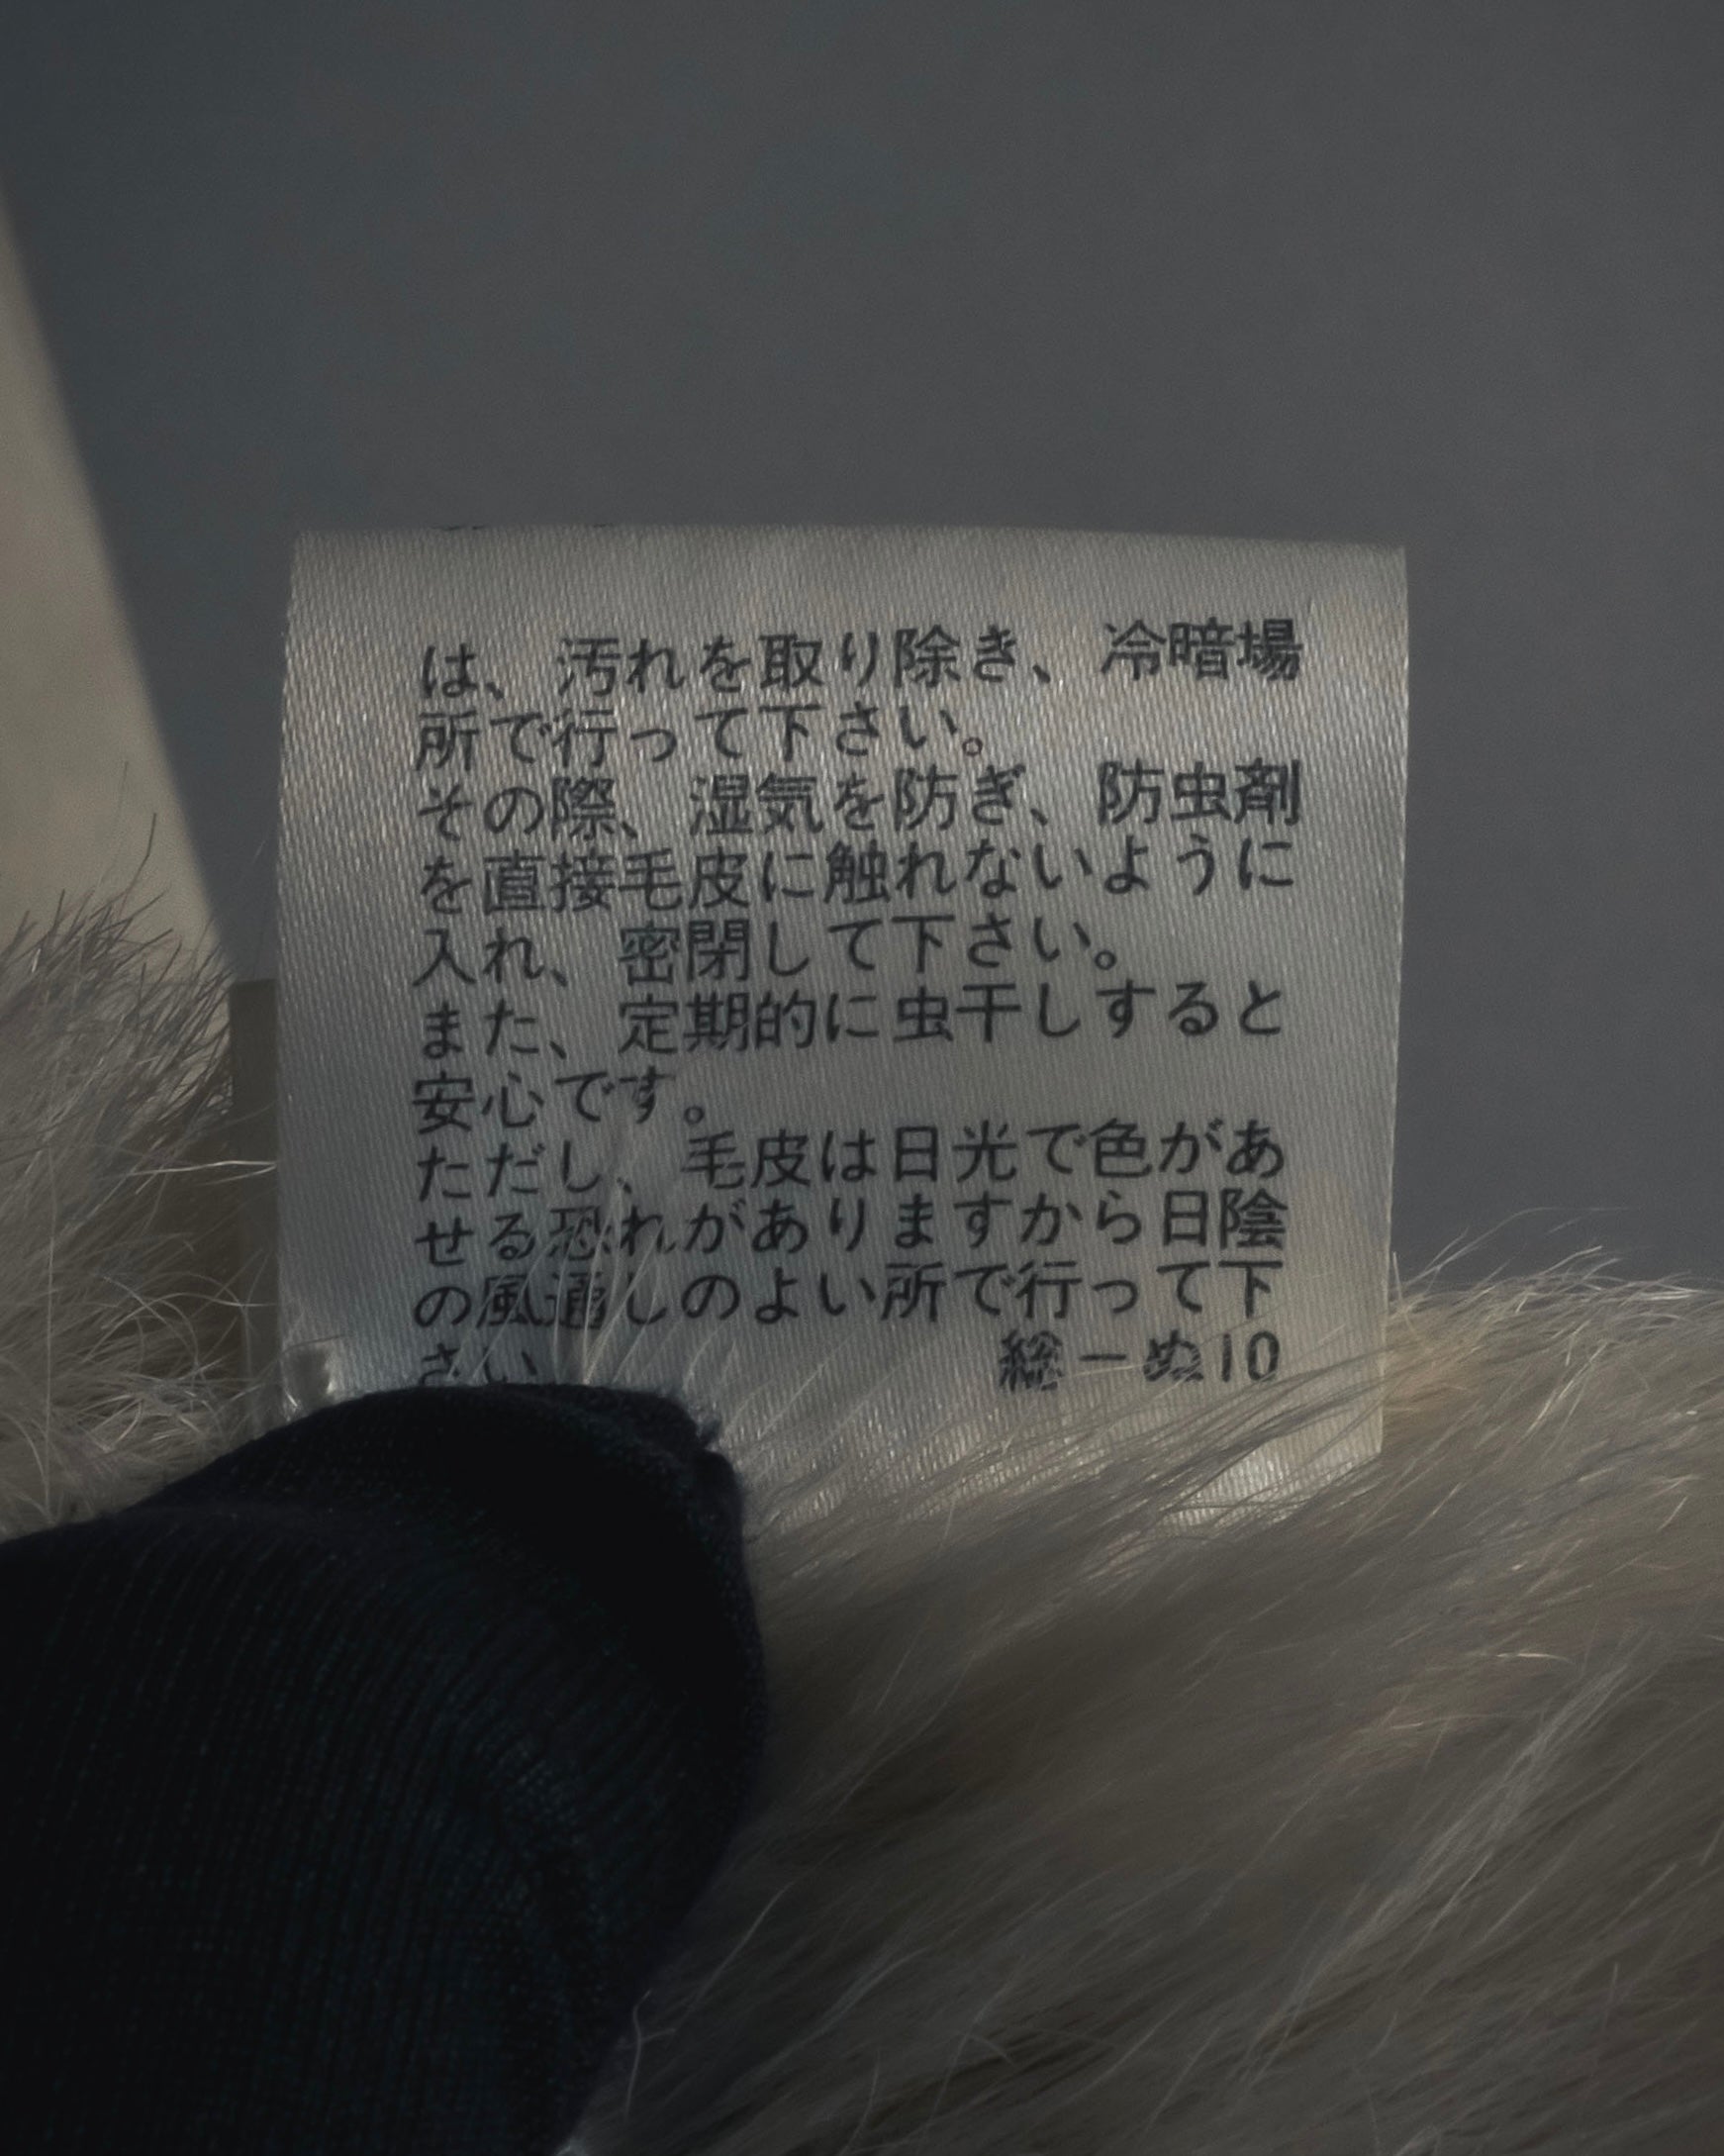 は、汚れを取り除き、冷暗場
所で行って下さい。
その際、湿気を防ぎ、防虫剤
を直接毛皮に触れないように
入れ、密閉して下さい。
また、定期的に虫干しすると
安心です。
ただし、毛皮は日光で色があ
せる恐れがありますから日陰
の風通しのよい所で行って下
さい
総－ぬ10